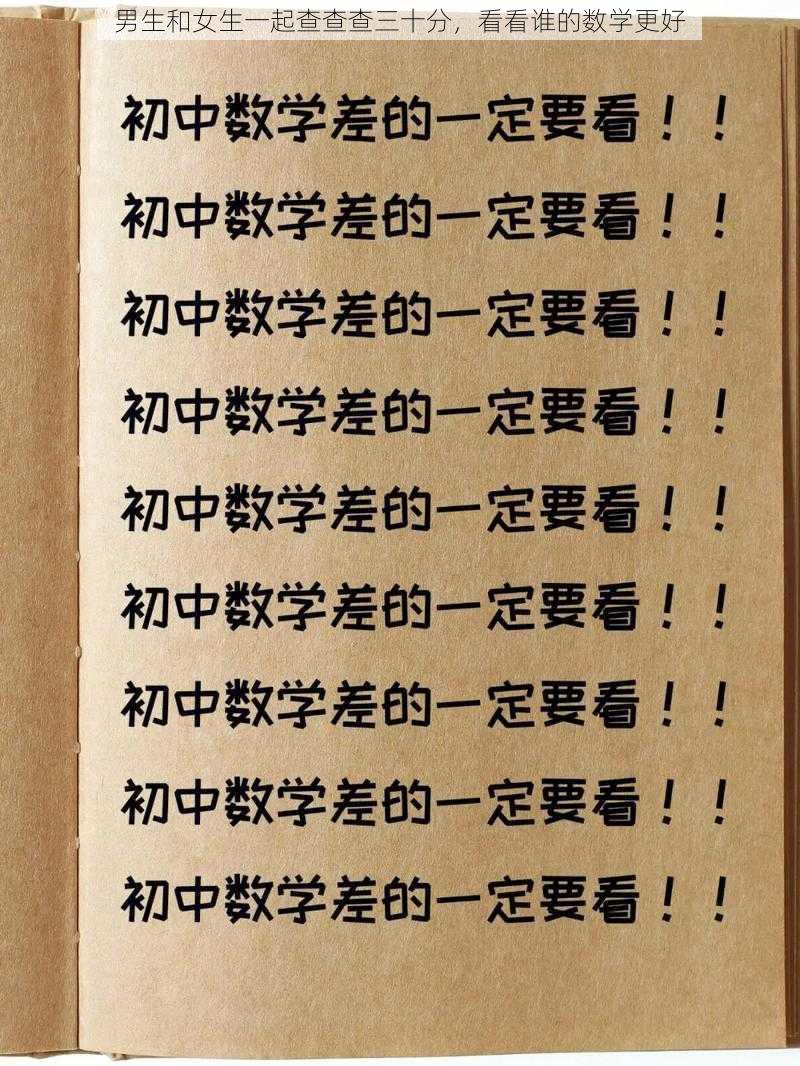 男生和女生一起查查查三十分，看看谁的数学更好
初中数学差的一定要看！！
初中数学差的一定要看！！
初中数学差的一定要看！！
初中数学差的一定要看！！
初中数学差的一定要看！！
初中数学差的一定要看！！
初中数学差的一定要看！！
初中数学差的一定要看！！
初中数学差的一定要看！！